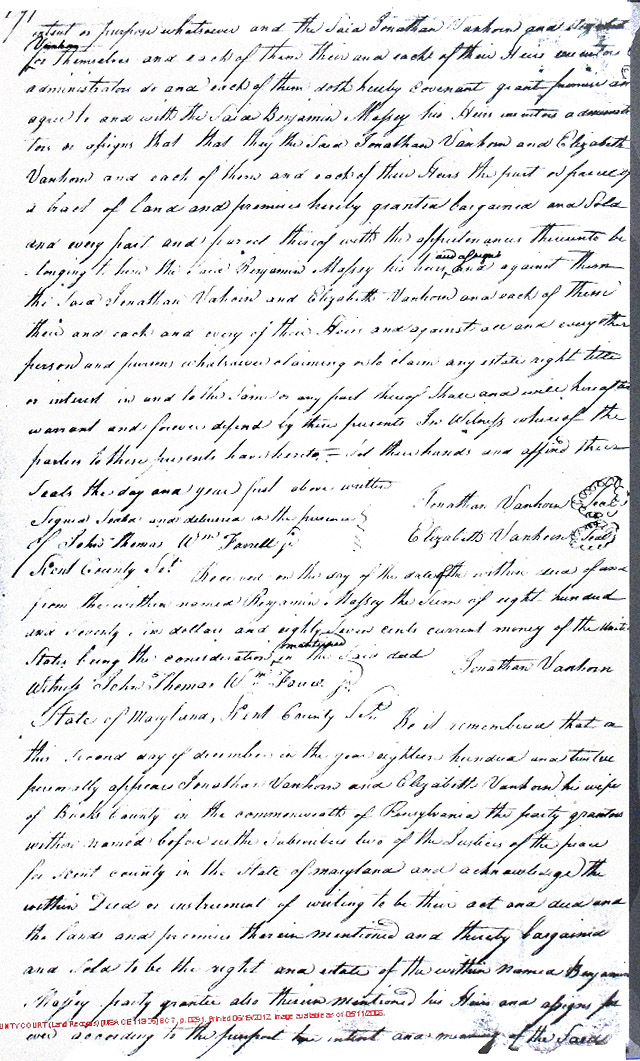 171
intent or purpose whatsoever and the Said Jonathan Vanhorn and Elizabeth
Vanhorn
for themselves and each of them their and each of their Heirs executors
administrators do and each of them doth hereby Covenant grant promise and
agree to and with the Said Benjamin Massey his Heirs executors administra
tors or assigns that that they the Said Jonathan Vanhorn and Elizabeth
Vanhorn and each of them and each of their Heirs the part or parcel of
a tract of Land and premises hereby granted bargained and Sold
and every part and parcel thereof with the appurtenances thereunto be
longing to him the Said Benjamin Massey his heirs and assigns and against them
the Said Jonathan Vahorn and Elizabeth Vanhorn and each of them
their and each and every of their Heirs and against all and every other
person and persons whatsoever claiming or to claim any estate right title
or interest in and to the Same or any part thereof Shall and will hereafter
warrant and forever defend by these presents In Witness whereof the
parties to these presents have hereto = Set their hands and affixed their
Seals the day and year first above written
Jonathan Vanhorn Seal
Signed Sealed and delivered in the presence
Elizabeth Vanhorn Seal
of John Thomas Wm Farrell Jr
Kent County Sct. Received on the day of the date of the within deed of and
from the within named Benjamin Massey the Sum of eight hundred
and seventy six dollars and eighty seven cents current money of the United
States being the consideration mentioned in the Said deed
Jonathan Vanhorn
Witness John Thomas Wm Jr
State of Maryland, Kent County Sct. Be it remembered that on
this Second day of december in the year eighteen hundred and twelve
personally appears Jonathan Vanhorn and Elizabeth Vanhorn his wife
of Bucks County in the commonwealth of Pensylvania the party grantors
within named before us the Subscribers two of the Justices of the peace
for Kent county in the State of maryland and acknowledge the
within Deed or instrument of writing to be their act and deed and
the lands and premises therein mentioned and thereby bargained
and Sold to be the right and estate of the within named Benjamin
Massey party grantee also therein mentioned his Heirs and assigns for
ever according to the purport true intent and meaning of the Said
UNTY COURT (Land Records) BC 7, p. 0291. Printed 06/19/2012. Image available as of 05/11/2005.